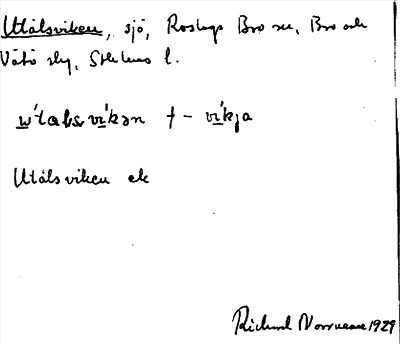 Utålsviken, sjö, Roslags Bro sn, Bro och
Vätö slg, Sthlms l.
w'tals vi'kən f – vi'kja
Utålsviken ek
Richard Norrman 1929